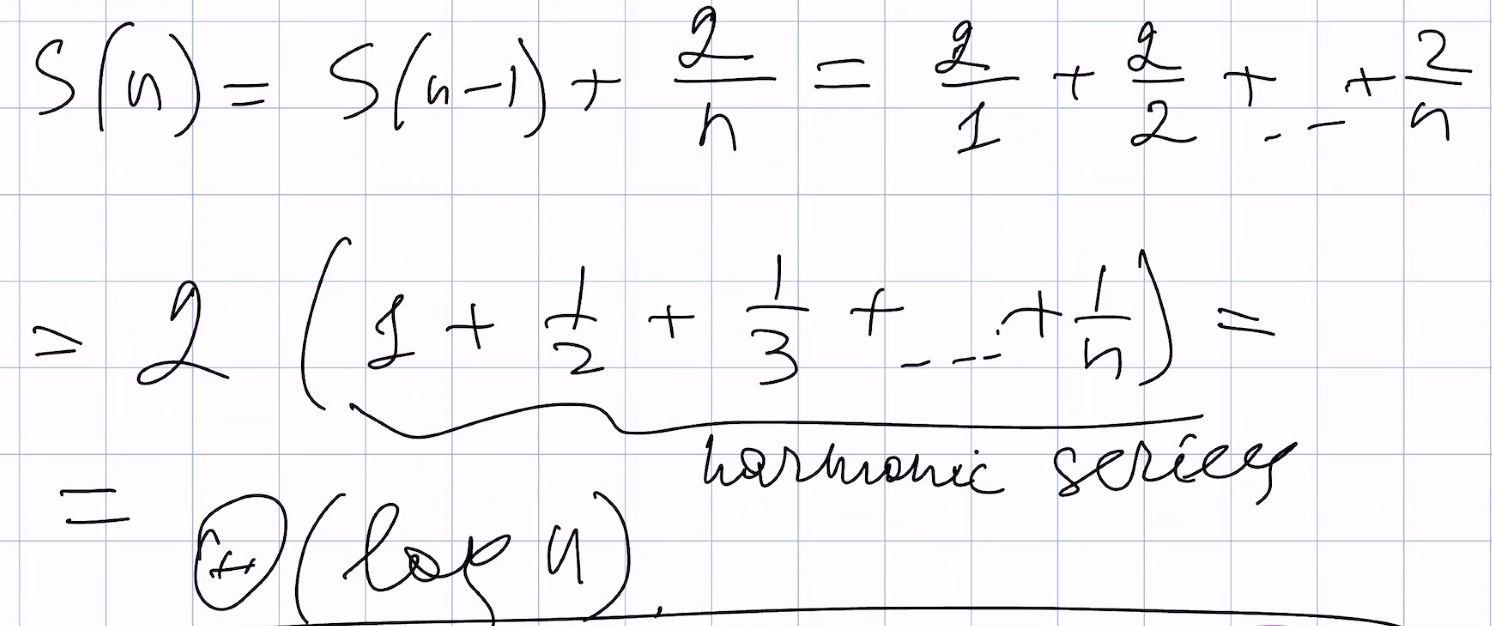 S(n) = S(n-1) + 2/n = 2/1 + 2/2 + ... + 2/n
= 2 (1 + 1/2 + 1/3 + ... + 1/n) =
harmonic series
= Θ(log n).